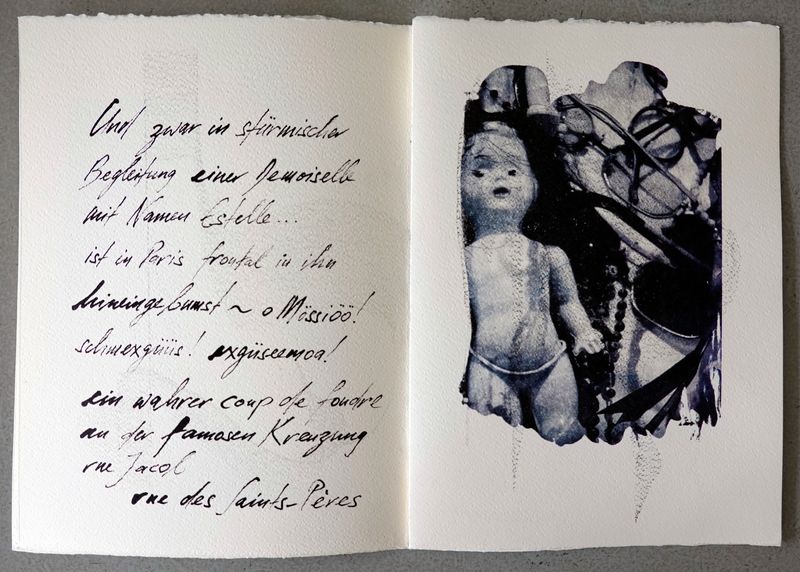 Und zwar in stürmischer
Begleitung einer Demoiselle
mit Namen Estelle...
ist in Paris frontal in ihn
hineingebumst ~ o Mössiöö!
schmexgüüs! exgüseemoa!
ein wahrer coup de foudre
an der famosen Kreuzung
rue Jacob
rue des Saints-Pères